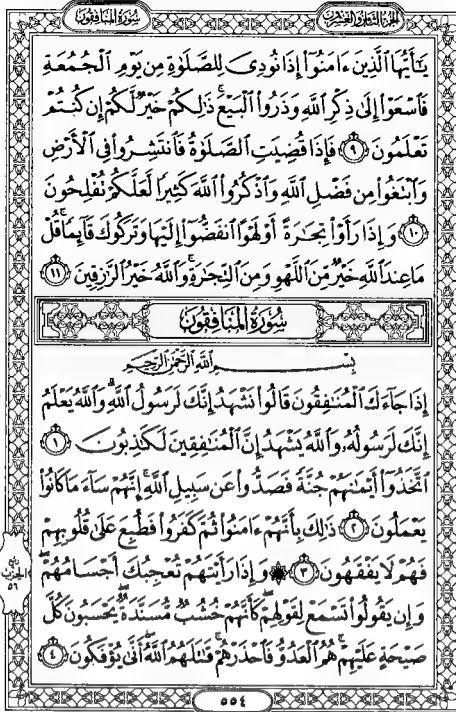 سُورَةُ المُنَافِقُونَ
الجُزءُ الثَّامِنُ وَالعِشْرُونَ
يَٰٓأَيُّهَا ٱلَّذِينَ ءَامَنُوٓا۟ إِذَا نُودِىَ لِلصَّلَوٰةِ مِن يَوْمِ ٱلْجُمُعَةِ
فَٱسْعَوْا۟ إِلَىٰ ذِكْرِ ٱللَّهِ وَذَرُوا۟ ٱلْبَيْعَ ۚ ذَٰلِكُمْ خَيْرٌ لَّكُمْ إِن كُنتُمْ
تَعْلَمُونَ ٩ فَإِذَا قُضِيَتِ ٱلصَّلَوٰةُ فَٱنتَشِرُوا۟ فِى ٱلْأَرْضِ
وَٱبْتَغُوا۟ مِن فَضْلِ ٱللَّهِ وَٱذْكُرُوا۟ ٱللَّهَ كَثِيرًا لَّعَلَّكُمْ تُفْلِحُونَ
١٠ وَإِذَا رَأَوْا۟ تِجَٰرَةً أَوْ لَهْوًا ٱنفَضُّوٓا۟ إِلَيْهَا وَتَرَكُوكَ قَآئِمًا ۚ قُلْ
مَا عِندَ ٱللَّهِ خَيْرٌ مِّنَ ٱللَّهْوِ وَمِنَ ٱلتِّجَٰرَةِ ۚ وَٱللَّهُ خَيْرُ ٱلرَّٰزِقِينَ ١١
سُورَةُ المُنَافِقُونَ
بِسْمِ ٱللَّهِ ٱلرَّحْمَٰنِ ٱلرَّحِيمِ
إِذَا جَآءَكَ ٱلْمُنَٰفِقُونَ قَالُوا۟ نَشْهَدُ إِنَّكَ لَرَسُولُ ٱللَّهِ ۗ وَٱللَّهُ يَعْلَمُ
إِنَّكَ لَرَسُولُهُۥ وَٱللَّهُ يَشْهَدُ إِنَّ ٱلْمُنَٰفِقِينَ لَكَٰذِبُونَ ١
ٱتَّخَذُوٓا۟ أَيْمَٰنَهُمْ جُنَّةً فَصَدُّوا۟ عَن سَبِيلِ ٱللَّهِ ۚ إِنَّهُمْ سَآءَ مَا كَانُوا۟
يَعْمَلُونَ ٢ ذَٰلِكَ بِأَنَّهُمْ ءَامَنُوا۟ ثُمَّ كَفَرُوا۟ فَطُبِعَ عَلَىٰ قُلُوبِهِمْ
فَهُمْ لَا يَفْقَهُونَ ٣ ۞ وَإِذَا رَأَيْتَهُمْ تُعْجِبُكَ أَجْسَامُهُمْ ۖ
وَإِن يَقُولُوا۟ تَسْمَعْ لِقَوْلِهِمْ ۖ كَأَنَّهُمْ خُشُبٌ مُّسَنَّدَةٌ ۖ يَحْسَبُونَ كُلَّ
صَيْحَةٍ عَلَيْهِمْ ۚ هُمُ ٱلْعَدُوُّ فَٱحْذَرْهُمْ ۚ قَٰتَلَهُمُ ٱللَّهُ ۖ أَنَّىٰ يُؤْفَكُونَ ٤
الحزب
٥٦
٥٥٤